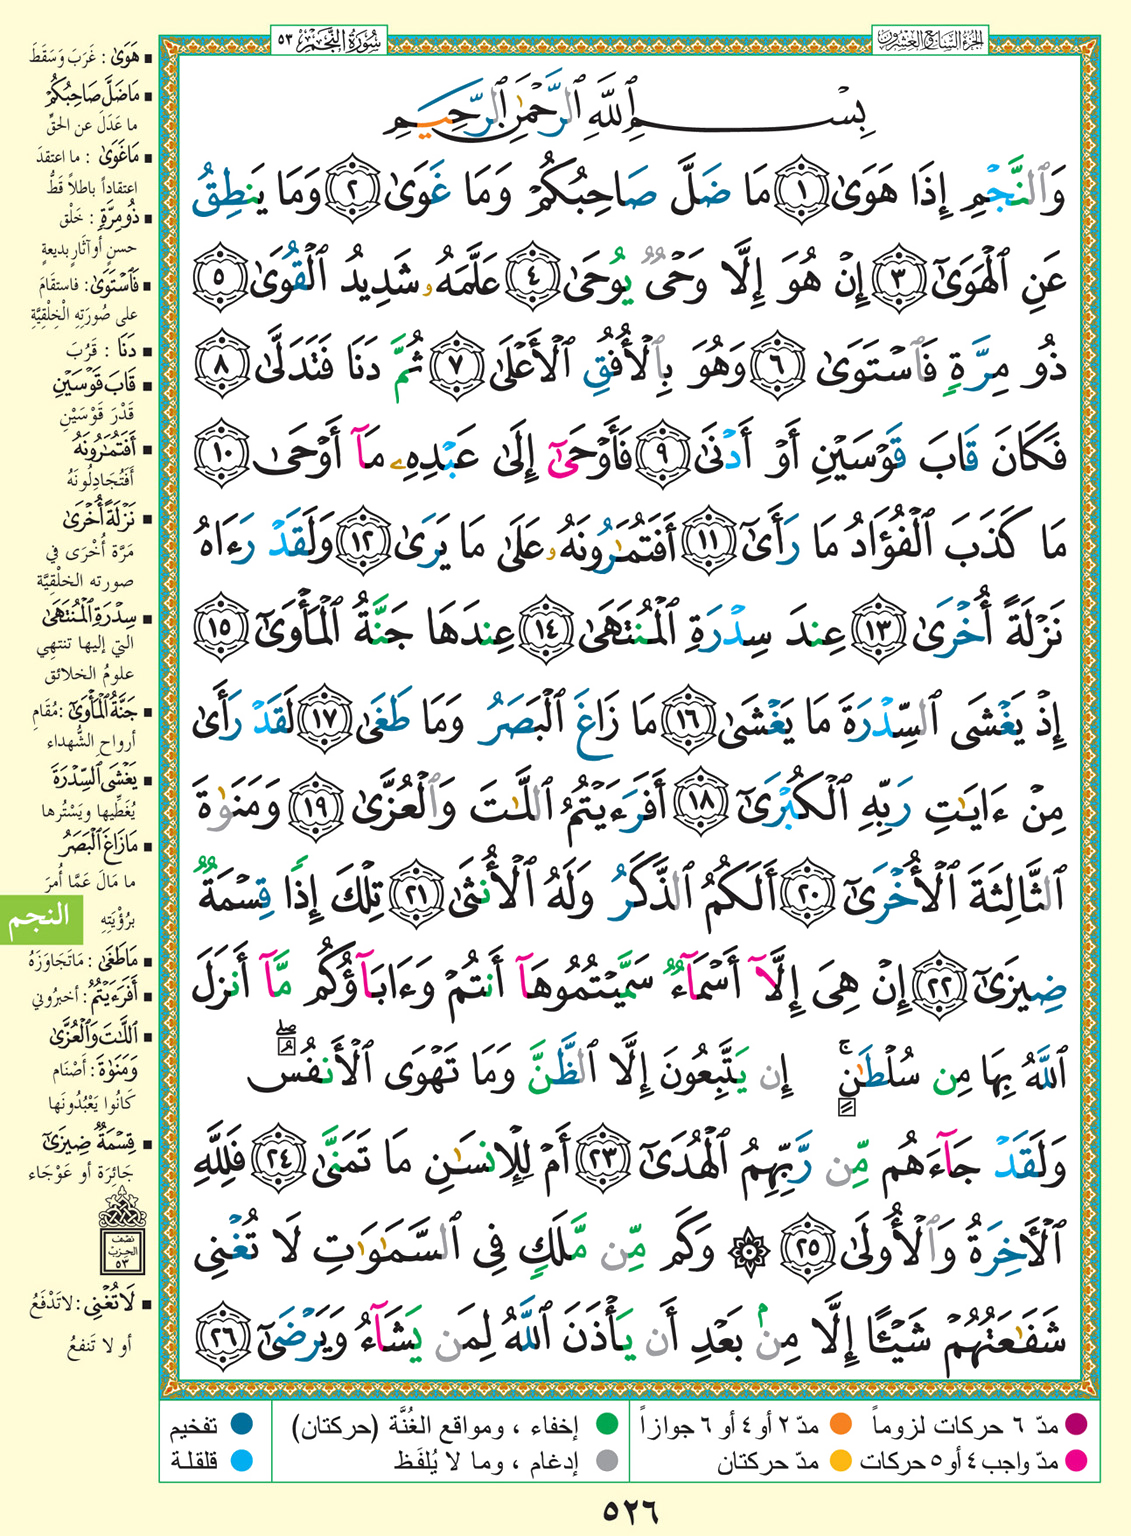 الجزء السابع والعشرون
سُورَةُ النَّجْمِ ٥٣
بِسْمِ ٱللَّهِ ٱلرَّحْمَٰنِ ٱلرَّحِيمِ
وَٱلنَّجْمِ إِذَا هَوَىٰ ١ مَا ضَلَّ صَاحِبُكُمْ وَمَا غَوَىٰ ٢ وَمَا يَنطِقُ
عَنِ ٱلْهَوَىٰٓ ٣ إِنْ هُوَ إِلَّا وَحْىٌ يُوحَىٰ ٤ عَلَّمَهُۥ شَدِيدُ ٱلْقُوَىٰ ٥
ذُو مِرَّةٍ فَٱسْتَوَىٰ ٦ وَهُوَ بِٱلْأُفُقِ ٱلْأَعْلَىٰ ٧ ثُمَّ دَنَا فَتَدَلَّىٰ ٨
فَكَانَ قَابَ قَوْسَيْنِ أَوْ أَدْنَىٰ ٩ فَأَوْحَىٰٓ إِلَىٰ عَبْدِهِۦ مَآ أَوْحَىٰ ١٠
مَا كَذَبَ ٱلْفُؤَادُ مَا رَأَىٰٓ ١١ أَفَتُمَٰرُونَهُۥ عَلَىٰ مَا يَرَىٰ ١٢ وَلَقَدْ رَءَاهُ
نَزْلَةً أُخْرَىٰ ١٣ عِندَ سِدْرَةِ ٱلْمُنتَهَىٰ ١٤ عِندَهَا جَنَّةُ ٱلْمَأْوَىٰٓ ١٥
إِذْ يَغْشَى ٱلسِّدْرَةَ مَا يَغْشَىٰ ١٦ مَا زَاغَ ٱلْبَصَرُ وَمَا طَغَىٰ ١٧ لَقَدْ رَأَىٰ
مِنْ ءَايَٰتِ رَبِّهِ ٱلْكُبْرَىٰٓ ١٨ أَفَرَءَيْتُمُ ٱللَّٰتَ وَٱلْعُزَّىٰ ١٩ وَمَنَوٰةَ
ٱلثَّالِثَةَ ٱلْأُخْرَىٰٓ ٢٠ أَلَكُمُ ٱلذَّكَرُ وَلَهُ ٱلْأُنثَىٰ ٢١ تِلْكَ إِذًا قِسْمَةٌ
ضِيزَىٰٓ ٢٢ إِنْ هِىَ إِلَّآ أَسْمَآءٌ سَمَّيْتُمُوهَآ أَنتُمْ وَءَابَآؤُكُم مَّآ أَنزَلَ
ٱللَّهُ بِهَا مِن سُلْطَٰنٍ ۚ إِن يَتَّبِعُونَ إِلَّا ٱلظَّنَّ وَمَا تَهْوَى ٱلْأَنفُسُ ۖ
وَلَقَدْ جَآءَهُم مِّن رَّبِّهِمُ ٱلْهُدَىٰٓ ٢٣ أَمْ لِلْإِنسَٰنِ مَا تَمَنَّىٰ ٢٤ فَلِلَّهِ
ٱلْأٓخِرَةُ وَٱلْأُولَىٰ ٢٥ ۞ وَكَم مِّن مَّلَكٍ فِى ٱلسَّمَٰوَٰتِ لَا تُغْنِى
شَفَٰعَتُهُمْ شَيْـًٔا إِلَّا مِنۢ بَعْدِ أَن يَأْذَنَ ٱللَّهُ لِمَن يَشَآءُ وَيَرْضَىٰٓ ٢٦
■ هَوَىٰ : غَرَبَ وَسَقَطَ
■ مَاضَلَّ صَاحِبُكُمْ
ما عَدَلَ عن الحَقِّ
■ مَاغَوَىٰ : ما اعتقدَ
اعتقاداً باطلاً قَطُّ
■ ذُومِرَّةٍ : خَلْق
حسنٍ أوآثارٍ بديعةٍ
■ فَٱسْتَوَىٰ : فاستقَامَ
على صُورَتِهِ الْخِلْقِيَّةِ
■ دَنَا : قَرُبَ
■ قَابَ قَوْسَيْنِ
قَدْرَ قَوْسَيْنِ
■ أَفَتُمَٰرُونَهُ
أَفَتُجَادِلُونَهُ
■ نَزْلَةً أُخْرَىٰ
مَرَّة أُخْرَى في
صورته الخلْقِيَّة
■ سِدْرَةِ ٱلْمُنتَهَىٰ
التي إليها تنتهِي
علومُ الخلائق
■ جَنَّةُ ٱلْمَأْوَىٰٓ : مُقَامِ
أرواح الشُّهداء
■ يَغْشَى ٱلسِّدْرَةَ
يُغَطِّيها ويَسْتُرها
■ مَازَاغَ ٱلْبَصَرُ
ما مَالَ عَمَّا أُمِرَ
برُؤْيَتِهِ
النجم
■ مَاطَغَىٰ : مَاتَجَاوَزَهُ
■ أَفَرَءَيْتُمُ : أخبرُوني
■ ٱللَّٰتَ وَٱلْعُزَّىٰ
وَمَنَوٰةَ : أَصْنَام
كَانُوا يَعْبُدُونَها
■ قِسْمَةٌ ضِيزَىٰٓ
جَائِرَة أو عَوْجَاء
نصف
الحزب
٥٣
■ لَاتُغْنِى : لاتَدْفَعُ
أو لا تَنفعُ
مدّ ٦ حركات لزوماً
مدّ ٢ أو ٤ أو ٦ جوازاً
إخفاء ، ومواقع الغُنَّة (حركتان)
تفخيم
مدّ واجب ٤ أو ٥ حركات
مدّ حركتان
إدغام ، وما لا يُلفَظ
قلقلة
٥٢٦